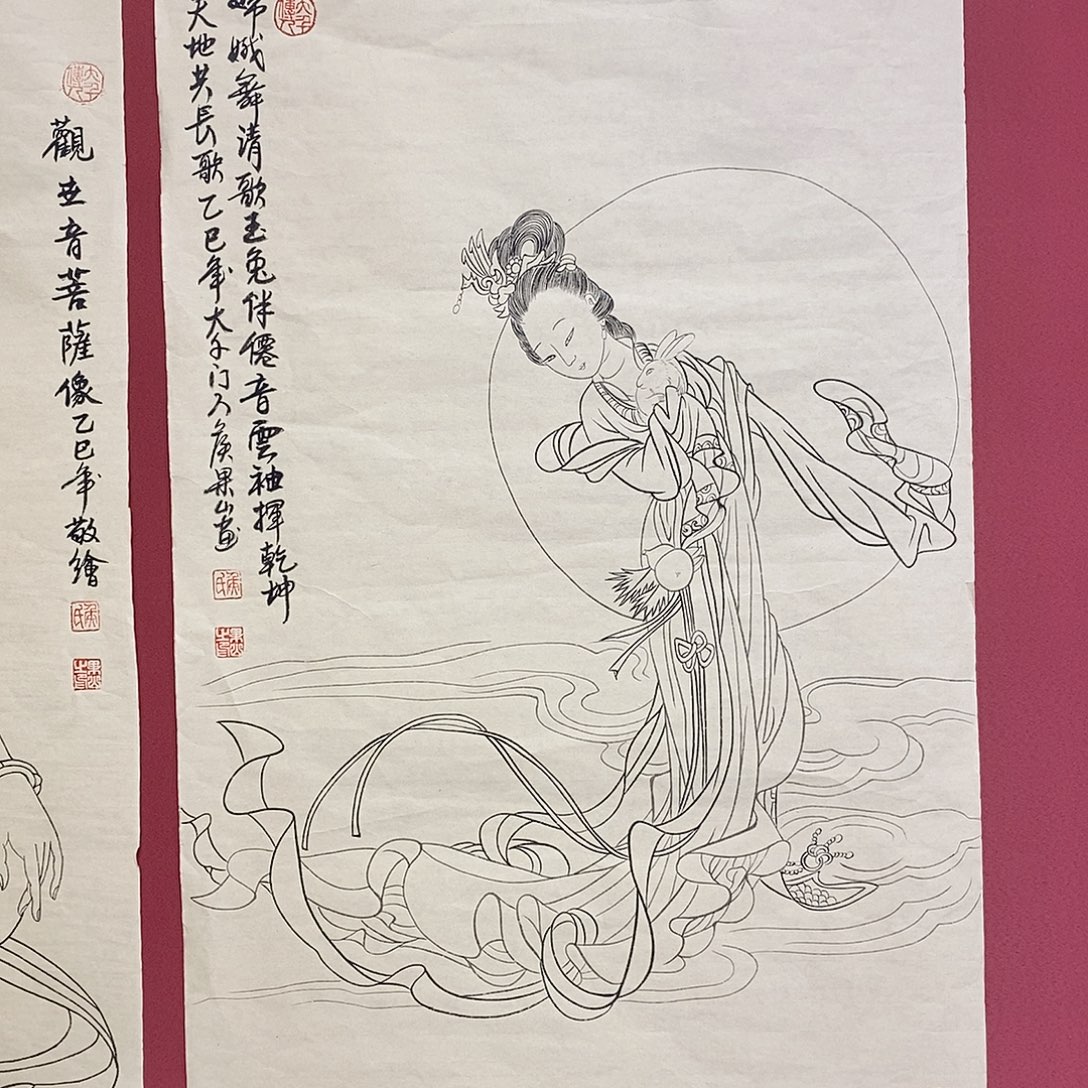 嫦娥舞清歌玉兔伴僊音雲袖揮乾坤
天地共長歌乙巳年大千门人侯果山畫
觀世音菩薩像乙巳年敬繪